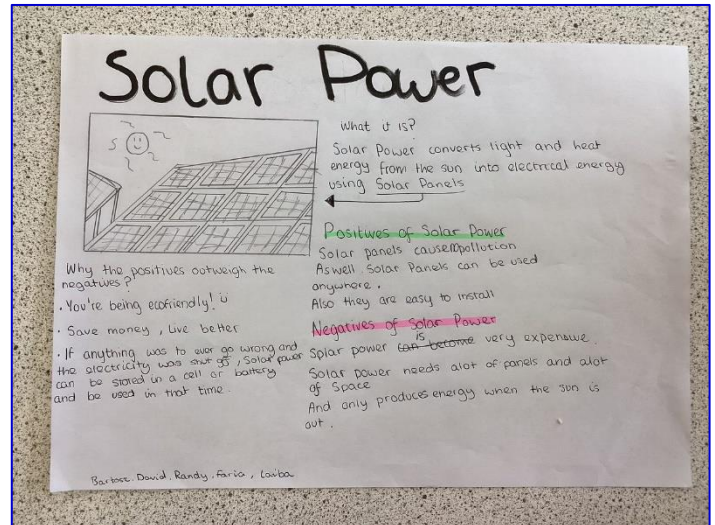 Solar Power
What is it?
Solar Power converts light and heat
energy from the sun into electrical energy
using Solar Panels
Positives of Solar Power
Solar panels cause no pollution
Aswell. Solar Panels can be used
anywhere.
Also they are easy to install
Negatives of Solar Power
Solar power can become is very expensive.
Solar power needs alot of panels and alot
of Space
And only produces energy when the sun is
out.
Why the positives outweigh the
negatives?
• You're being ecofriendly! ü
• Save money, Live better
• If anything was to ever go wrong and
the electricity was shut off, Solar power
can be stored in a cell or battery
and be used in that time.
David, Randy, Faria, Laiba